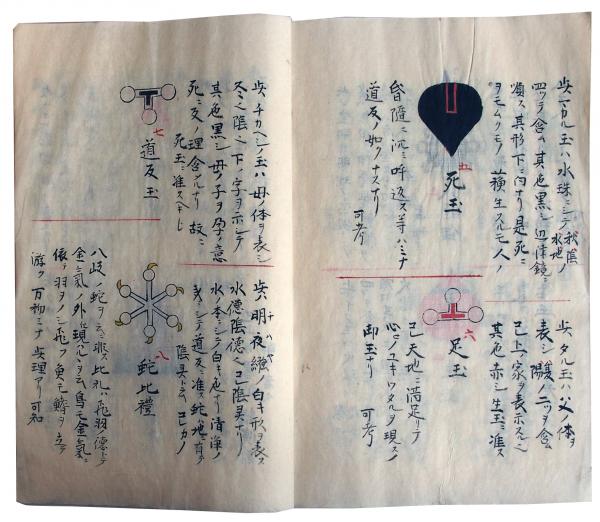 五
死玉
此マカル玉ハ水珠ニシテ秋陰
水地ノ
四ツヲ含ム其色黒シ辺津鏡ニ
順ス其形下ニ向ナリ是死ニ
ヲモムクモノ蘓生スルモ人ノ
昏隨ニ沉ミ呼返ス等ハミナ
道反ノ如クナスナリ
可考
六
足玉
此タル玉ハ父ノ体ヲ
表シ陽ノ二ツヲ含ム
己上ノ家ヲ表示スルニ
其色赤シ生玉ニ準ス
己天地ニ満足リテ
心ノユキワタルヲ現スノ
御玉ナリ
可考
七
道反玉
此チカヘシノ玉ハ母ノ体ヲ表シ
冬ニ陰ニ下ノ字ヲ示シテ
其色黒シ母ノ子ヲ孕ノ意
死ニ反ノ理含ムナリ故ニ
死玉ニ準スヘキ也
八
蛇比禮
此ハ明夜纏ノ白キ形ヲ表ス
水德陰德ヘ己陰灵ナリ
水ノ本ニシテ白キ色ナリ清浄ノ
義ニシテ道反ニ準ス蛇ハ地有テ
陰具ト云コヒカノ
八岐ノ蛇ヲ云ニ非ス比礼ハ飛羽德トテ
金氣ノ外ニ現ハルヲ云鳥モ金氣ニ
依テ羽ヲノシ飛フ魚モ鰭ヲ立テ
游ク万物ミナ此理アリ可知